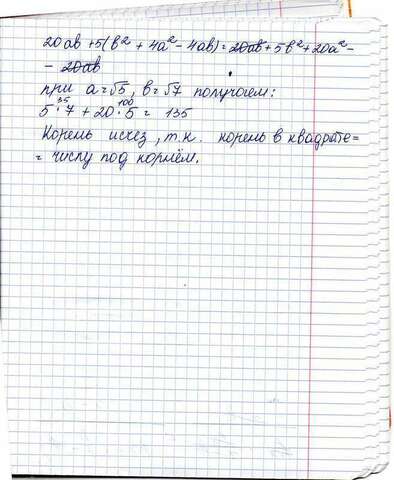 20ab + 5(b² + 4a² - 4ab) = 20ab + 5b² + 20a² -
- 20ab
при a = √5, b = √7 получаем:
35 100
5 · 7 + 20 · 5 = 135
Корень исхез, т.к. корень в квадрате =
= числу под корнем.